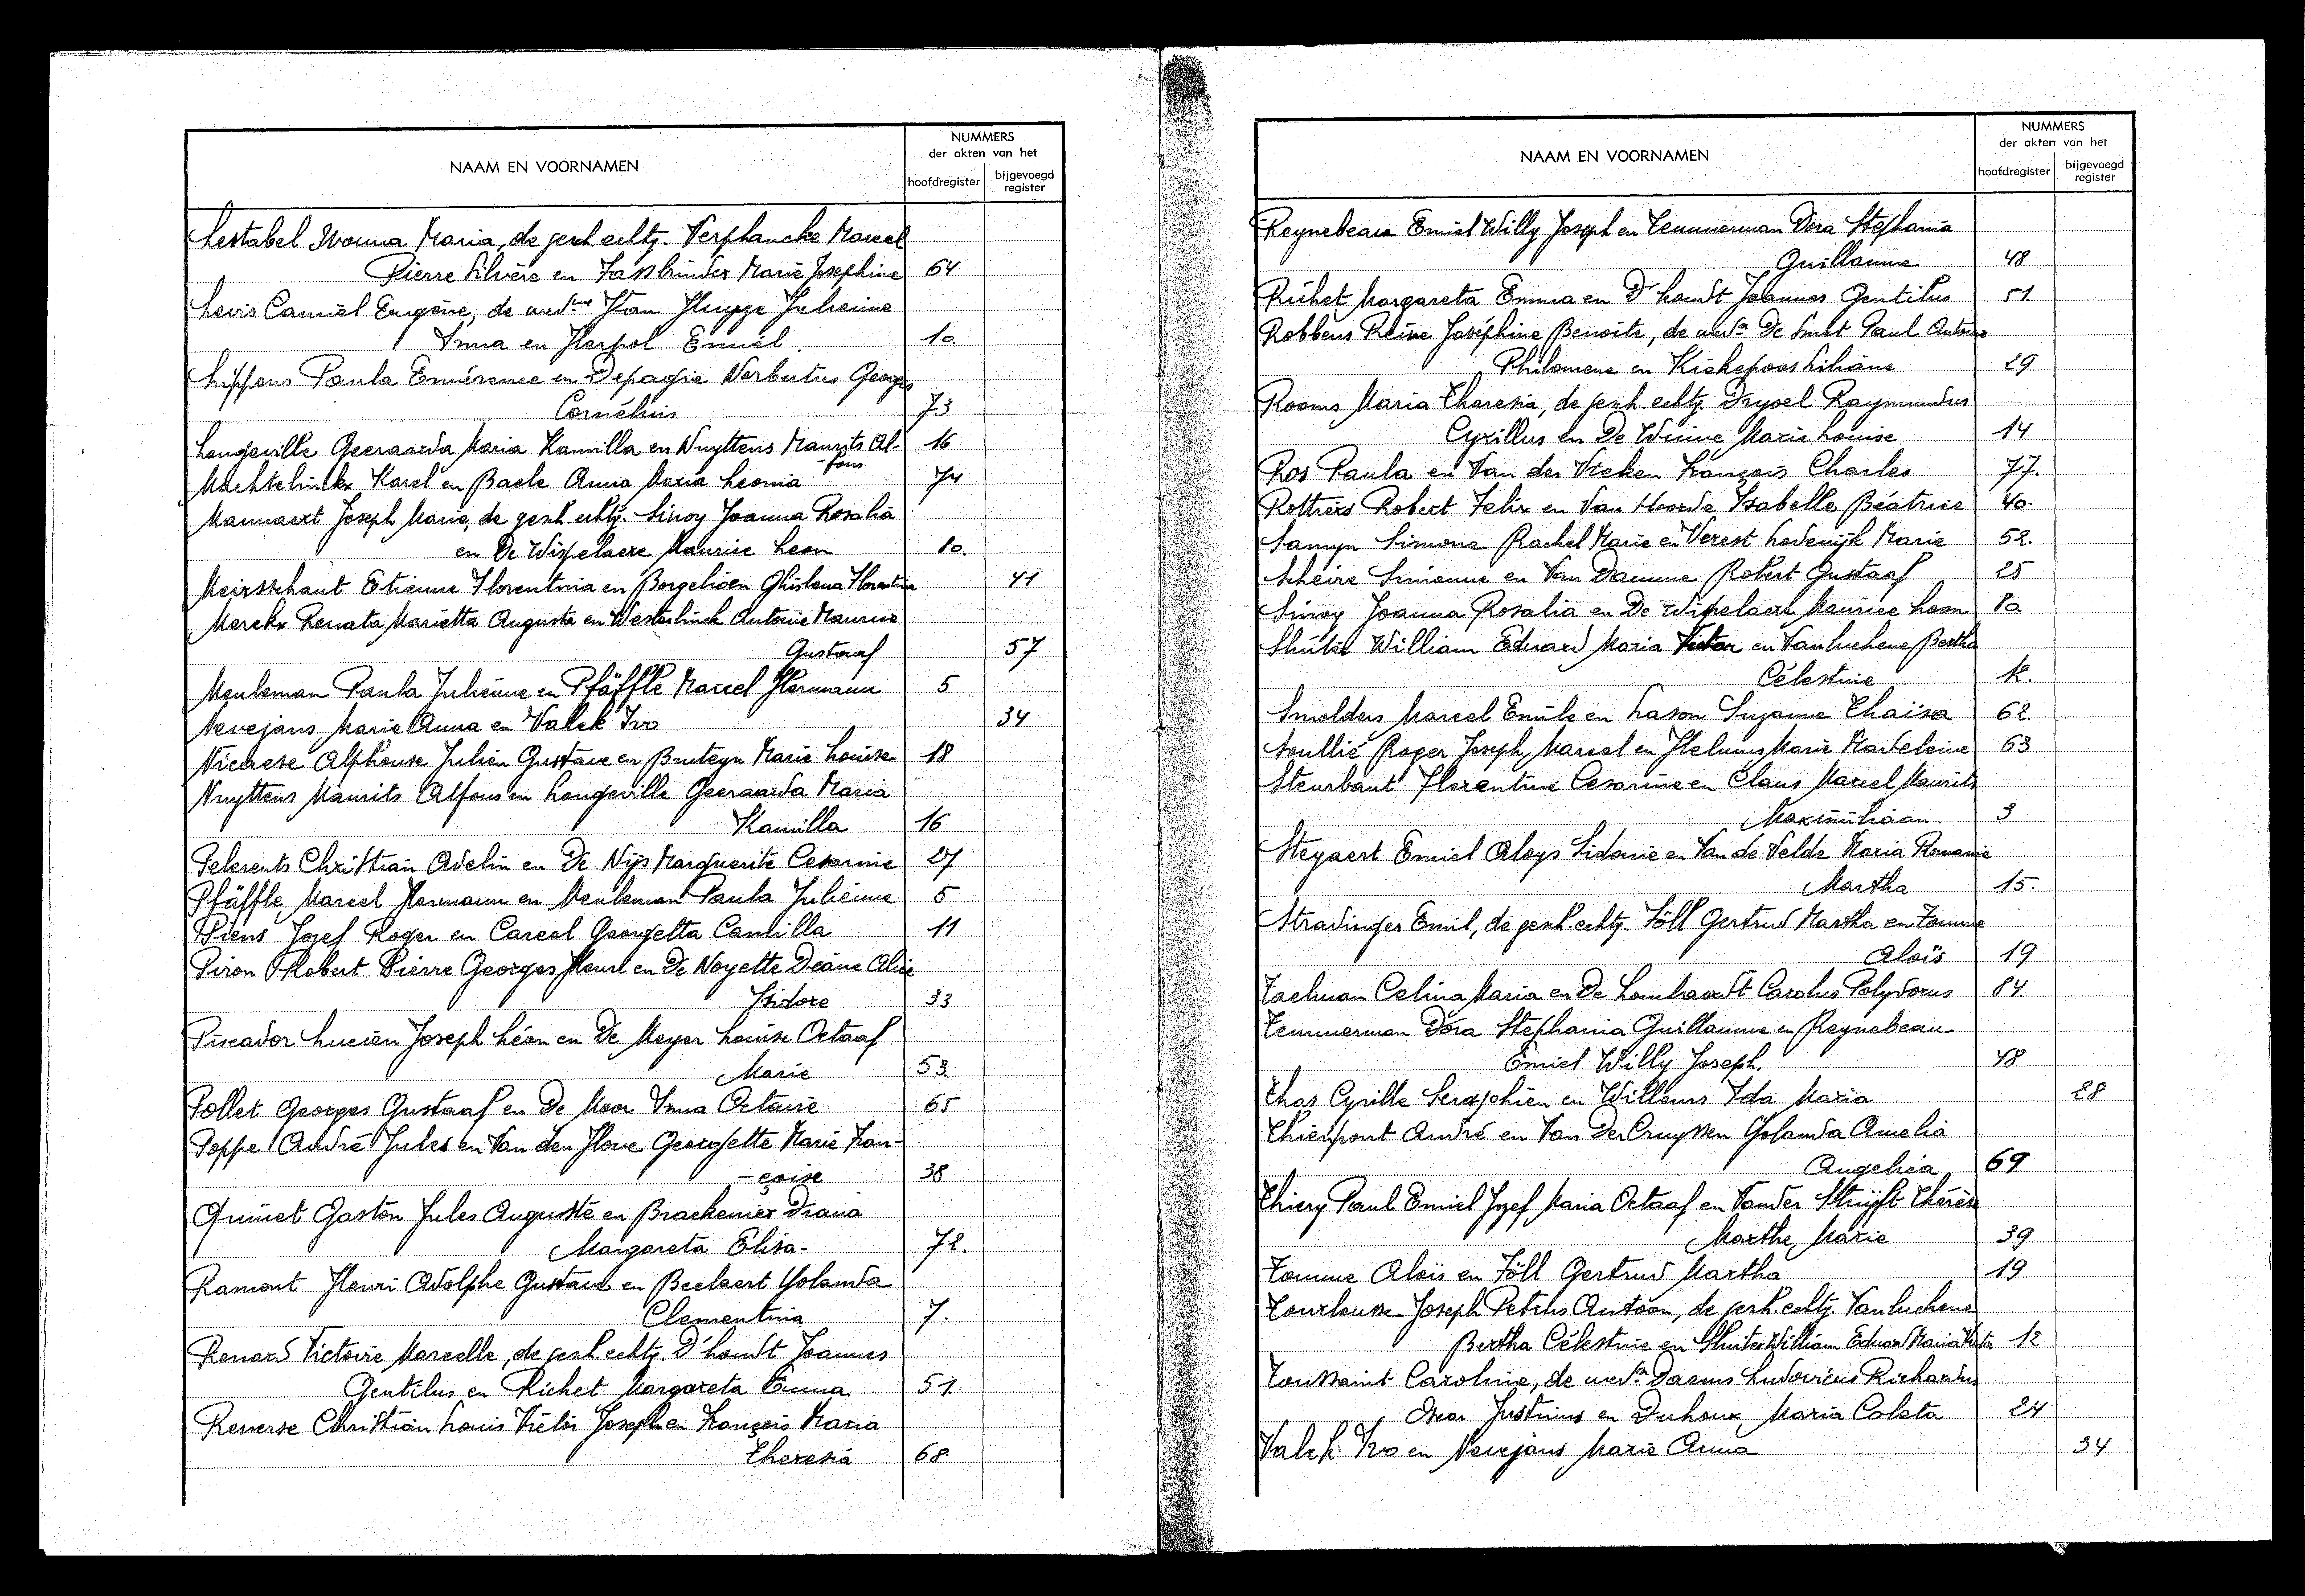 NAAM EN VOORNAMEN
NUMMERS
der akten van het
hoofdregister
bijgevoegd
register
Lestabel Ivonna Maria, de gesch. echtg. Verplancke Marcel
Pierre Silvère en Fassbinder Marie Josephine 64
Levis Camiel Eugène, de wedne Van Hugge Julienne
Irma en Herpol Emiel. 10.
Lippens Paula Emérence en Depagie Norbertus Georges
Cornélius 73
Longeville Geeraarda Maria Kamilla en Nuyttens Maurits Al- 16
-fons
Machtelinckx Karel en Baele Anna Maria Leonia 74
Mannaert Joseph Marie, de gesch. echtg. Sinoy Joanna Rosalia
en De Wispelaere Maurice Leon 80.
Meirsschaut Etienne Florentinia en Borgelioen Ghislena Florentina 41
Merckx Renata Marietta Augusta en Westerlinck Antoine Maurice
Gustaaf 57
Meuleman Paula Julienne en Pfäffle Marcel Hermann 5
Nevejans Marie Anna en Valck Ivo 34
Nicaese Alphonse Julien Gustave en Bruteyn Marie Louise 18
Nuyttens Maurits Alfons en Longeville Geeraarda Maria
Kamilla 16
Pelerents Christian Adelin en De Nijs Marguerite Cesarine 27
Pfäffle Marcel Hermann en Meuleman Paula Julienne 5
Piens Jozef Roger en Careel Georgetta Camilla 11
Piron Robert Pierre Georges Henri en De Noyette Diane Alice
Isidore 33
Piscador Lucien Joseph Léon en De Meyer Louise Octaaf
Marie 53.
Pollet Georges Gustaaf en De Moor Irma Octavie 65
Poppe André Jules en Van den Hove Georgette Marie Fran-
-çoise 38
Quinet Gaston Jules Auguste en Brackenier Diana
Margareta Elisa. 72.
Ramont Henri Adolphe Gustave en Beelaert Yolanda
Clementina 7.
Renard Victoire Marcelle, de gesch. echtg. D'hondt Joannes
Gentilus en Richet Margareta Emma 51.
Renerse Christian Louis Victor Joseph en François Maria
Theresia 68.
NAAM EN VOORNAMEN
NUMMERS
der akten van het
hoofdregister
bijgevoegd
register
Reynebeau Emiel Willy Joseph en Temmerman Dora Stephania
Guillaume 48
Richet Margareta Emma en D'hondt Joannes Gentilus 51.
Robbens Reine Joséphine Benoite, de wede De Smet Paul Antoine
Philomene en Kiekepoos Liliane 29
Rooms Maria Theresia, de gesch. echtg. Dryoel Raymundus
Cyrillus en De Winne Marie Louise 14
Ros Paula en Van der Vreken François Charles 77.
Rothiers Robert Felix en Van Hoorde Isabelle Béatrice 40.
Samyn Simone Rachel Marie en Verest Lodewijk Marie 52.
Scheire Simonne en Van Damme Robert Gustaaf 25
Sinoy Joanna Rosalia en De Wispelaere Maurice Leon 80.
Sluiter William Eduard Maria Victor en Vanluchene Bertha
Célestine 12.
Smolders Marcel Emile en Lason Suzanne Thaïsa 62.
Soullié Roger Joseph Marcel en Helmus Marie Madeleine 63
Steurbaut Florentine Cesarine en Claus Marcel Maurits
Maximiliaan. 3
Steyaert Emiel Aloys Sidonie en Van de Velde Maria Romanie
Martha 15.
Stradinger Emil, de gesch. echtg. Föll Gertrud Martha en Tomme
Aloïs 19
Taelman Celina Maria en De Lombaerdt Carolus Polydorus 84.
Temmerman Dora Stephania Guillaume en Reynebeau
Emiel Willy Joseph. 48
Thas Cyrille Seraphien en Willems Ida Maria 28
Thienpont André en Van Der Cruyssen Yolanda Amelia
Angelica 69
Thiery Paul Emiel Jozef Maria Octaaf en Vander Stuyft Thérèse
Marthe Marie 39
Tomme Aloïs en Föll Gertrud Martha 19
Tourlousse Joseph Petrus Antoon, de gesch. echtg. Vanluchene
Bertha Célestine en Sluiter William Eduard Maria Victor 12
Toussaint Caroline, de wede Daems Ludovicus Richardus
Oscar Justinus en Duhoux Maria Coleta 24
Valck Ivo en Nevejans Marie Anna 34